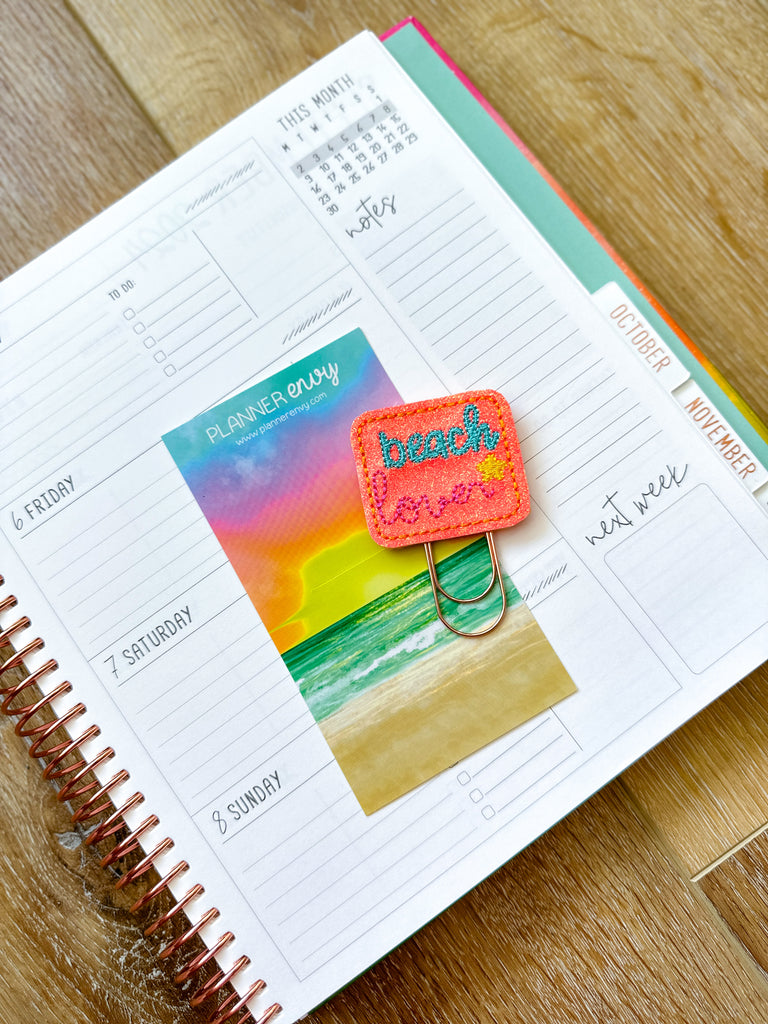 THIS MONTH
M T W T F S S
1
2 3 4 5 6 7 8
9 10 11 12 13 14 15
16 17 18 19 20 21 22
23 24 25 26 27 28 29
30
notes
TO DO:
OCTOBER
NOVEMBER
PLANNER envy
www.plannerenvy.com
beach
lover
6 FRIDAY
next week
7 SATURDAY
8 SUNDAY